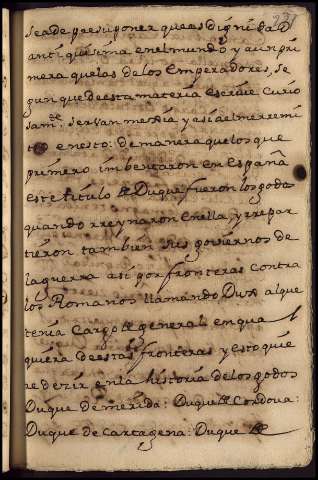 231
se a de presuponer que es dignidad
antiquisima en el mundo y aun pri
mera que las de los Emperadores, se
gun que de esta materia escrive curio
sam.te servan mexia y asi a el me rremi
to en esto: de manera que los que
primero imbentaron en España
este titulo de Duque fueron los godos
quando rreynaron en ella, y rrepar
tieron tambien sus goviernos de
la guerra asi por fronteras contra
los Romanos llamando Dux al que
tenia cargo de general en qual
quiera de estas fronteras y esto quie
re dezir en la historia de los godos
Duque de merida: Duque de Cordova:
Duque de Cartagena: Duque de